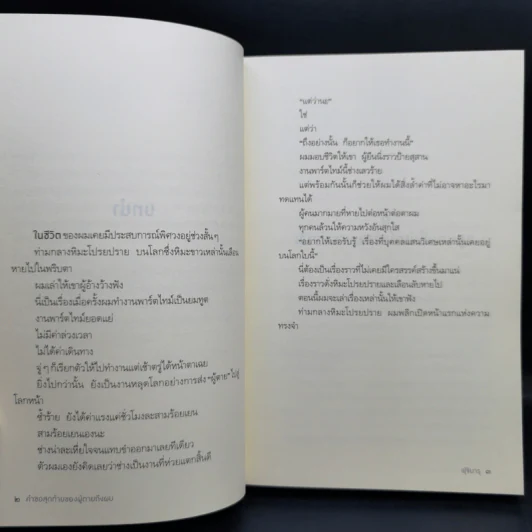 บทนำ
ในชีวิตของผมเคยมีประสบการณ์พิศวงอยู่ช่วงสั้นๆ
ท่ามกลางหิมะโปรยปราย บนโลกซึ่งหิมะขาวเหล่านั้นเลือน
หายไปในพริบตา
ผมเล่าให้เขาผู้อ้างว้างฟัง
นี่เป็นเรื่องเมื่อครั้งผมทำงานพาร์ตไทม์เป็นยมทูต
งานพาร์ตไทม์ยอดแย่
ไม่มีค่าล่วงเวลา
ไม่ได้ค่าเดินทาง
จู่ๆ ก็เรียกตัวให้ไปทำงานแต่เช้าตรู่ได้หน้าตาเฉย
ยิ่งไปกว่านั้น ยังเป็นงานหลุดโลกอย่างการส่ง "ผู้ตาย" ไปสู่
โลกหน้า
ซ้ำร้าย ยังได้ค่าแรงแค่ชั่วโมงละสามร้อยเยน
สามร้อยเยนเองนะ
ช่างน่าละเหี่ยใจจนแทบขำออกมาเลยทีเดียว
ตัวผมเองยังคิดเลยว่าช่างเป็นงานที่ห่วยแตกสิ้นดี
๒ คำขอสุดท้ายของผู้ตายถึงยม
"แต่ว่านะ"
ใช่
แต่ว่า
"ถึงอย่างนั้น ก็อยากให้เธอทำงานนี้"
ผมมอบชีวิตให้เขา ผู้ยืนนิ่งราวป้ายสุสาน
งานพาร์ตไทม์นี้ช่างเลวร้าย
แต่พร้อมกันนั้นก็ช่วยให้ผมได้สิ่งล้ำค่าที่ไม่อาจหาอะไรมา
ทดแทนได้
ผู้คนมากมายที่หายไปต่อหน้าต่อตาผม
ทุกคนล้วนให้ความหวังอันสุกใส
"อยากให้เธอรับรู้ เรื่องที่บุคคลแสนวิเศษเหล่านั้นเคยอยู่
บนโลกใบนี้"
นี่ต้องเป็นเรื่องราวที่ไม่เคยมีใครสรรค์สร้างขึ้นมาแน่
เรื่องราวดั่งหิมะโปรยปรายและเลือนลับหายไป
ตอนนี้ผมจะเล่าเรื่องเหล่านั้นให้เขาฟัง
ท่ามกลางหิมะโปรยปราย ผมพลิกเปิดหน้าแรกแห่งความ
ทรงจำ
ฟุจิมารุ ๓